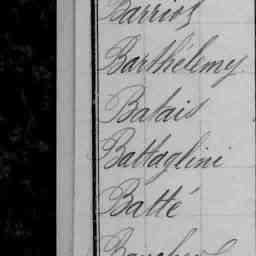 Barriol
Barthélemy
Balais
Battaglini
Batté